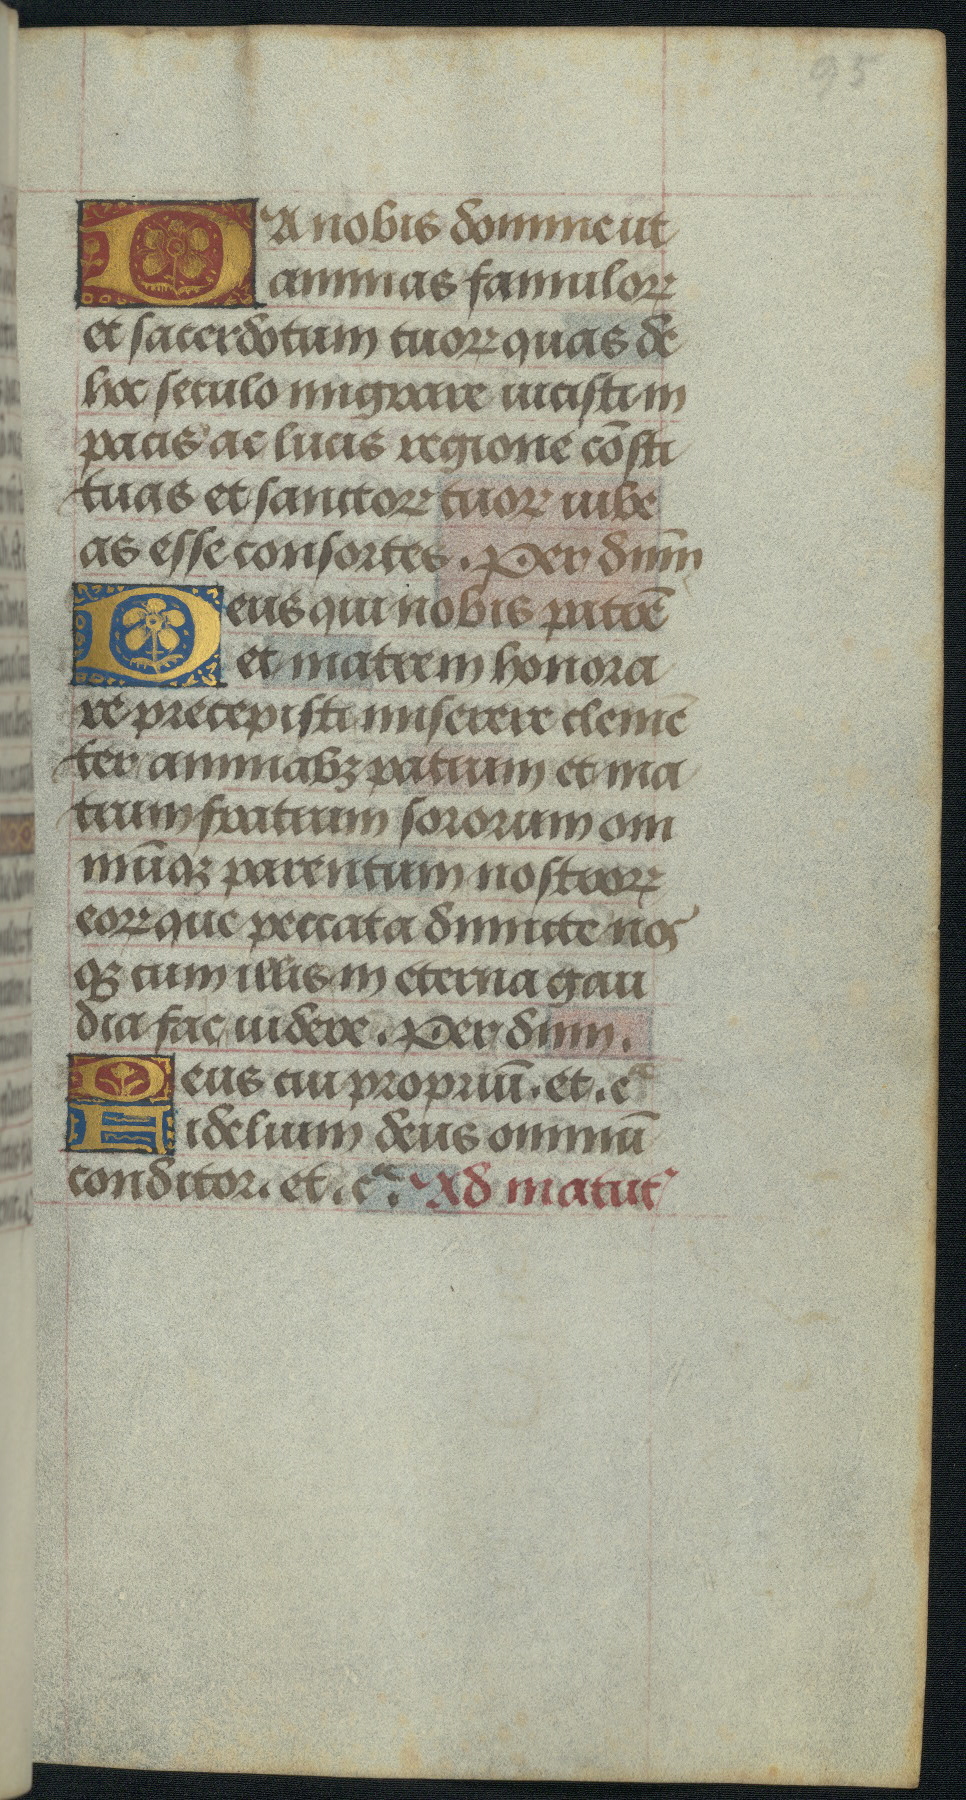 95
DA nobis domine ut
animas famuloꝝ
et sacerdotum tuoꝝ quas de
hoc seculo migrare iucisti in
pacis ac lucis regione cõsti
tuas et sanctoꝝ tuoꝝ iube
as esse consortes. Per dñm
Deus qui nobis patrẽ
et matrem honora
re precepisti miserere clemẽ
ter animabꝫ patrum et ma
trum fratrum sororum om
niũqꝫ parentum nostroꝝ
eoꝝque peccata dimitte nos
qꝫ cum illis in eterna gau
dia fac uidere. Per dñm.
Deus cui propriũ. et. cᵃ
Fidelium deus omniũ
conditor. et. cᵃ. Ad matut᾽